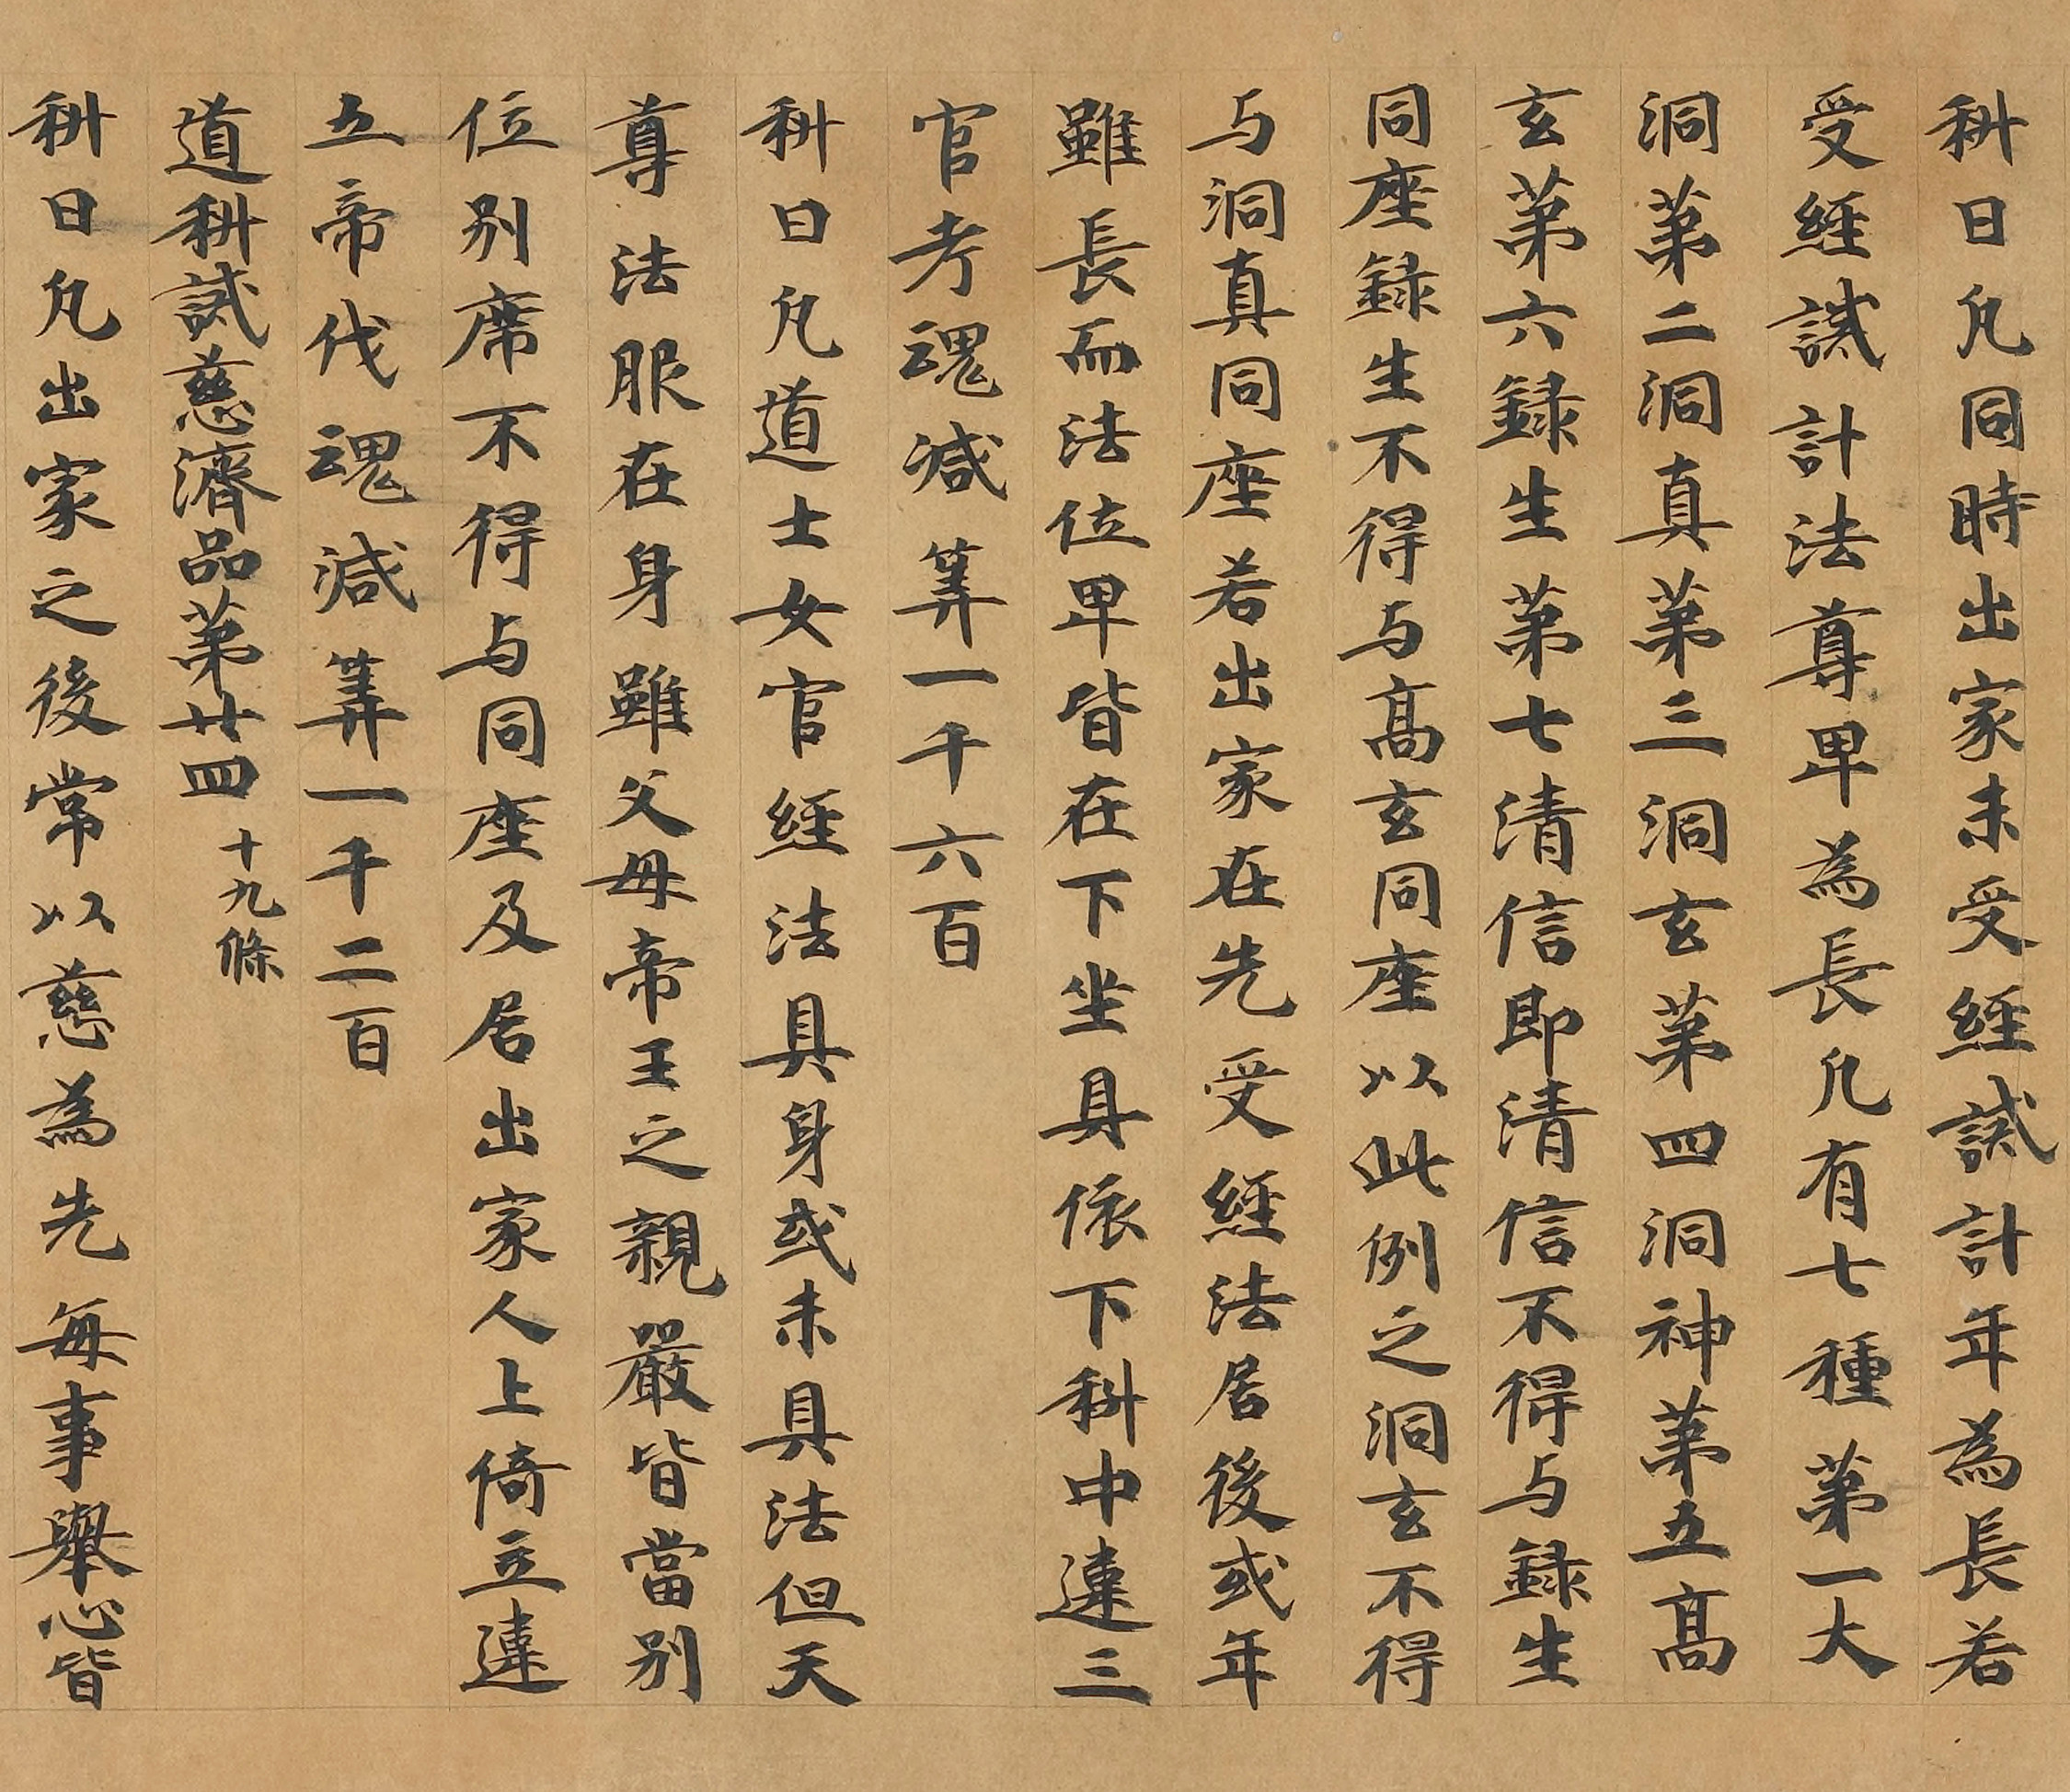 科曰凡同時出家未受經誡計年為長若
受經誡計法尊卑為長凡有七種第一大
洞第二洞真第三洞玄第四洞神第五高
玄第六録生第七清信即清信不得与録生
同座録生不得与高玄同座以此例之洞玄不得
与洞真同座若出家在先受經法居後或年
雖長而法位卑皆在下坐具依下科中違三
官考魂減筭一千六百
科曰凡道士女官經法具身或未具法但天
尊法服在身雖父母帝王之親嚴皆當別
位別席不得与同座及居出家人上倚立違
五帝伐魂減筭一千二百
道科誡慈濟品第廿四 十九條
科曰凡出家之後常以慈為先每事舉心皆